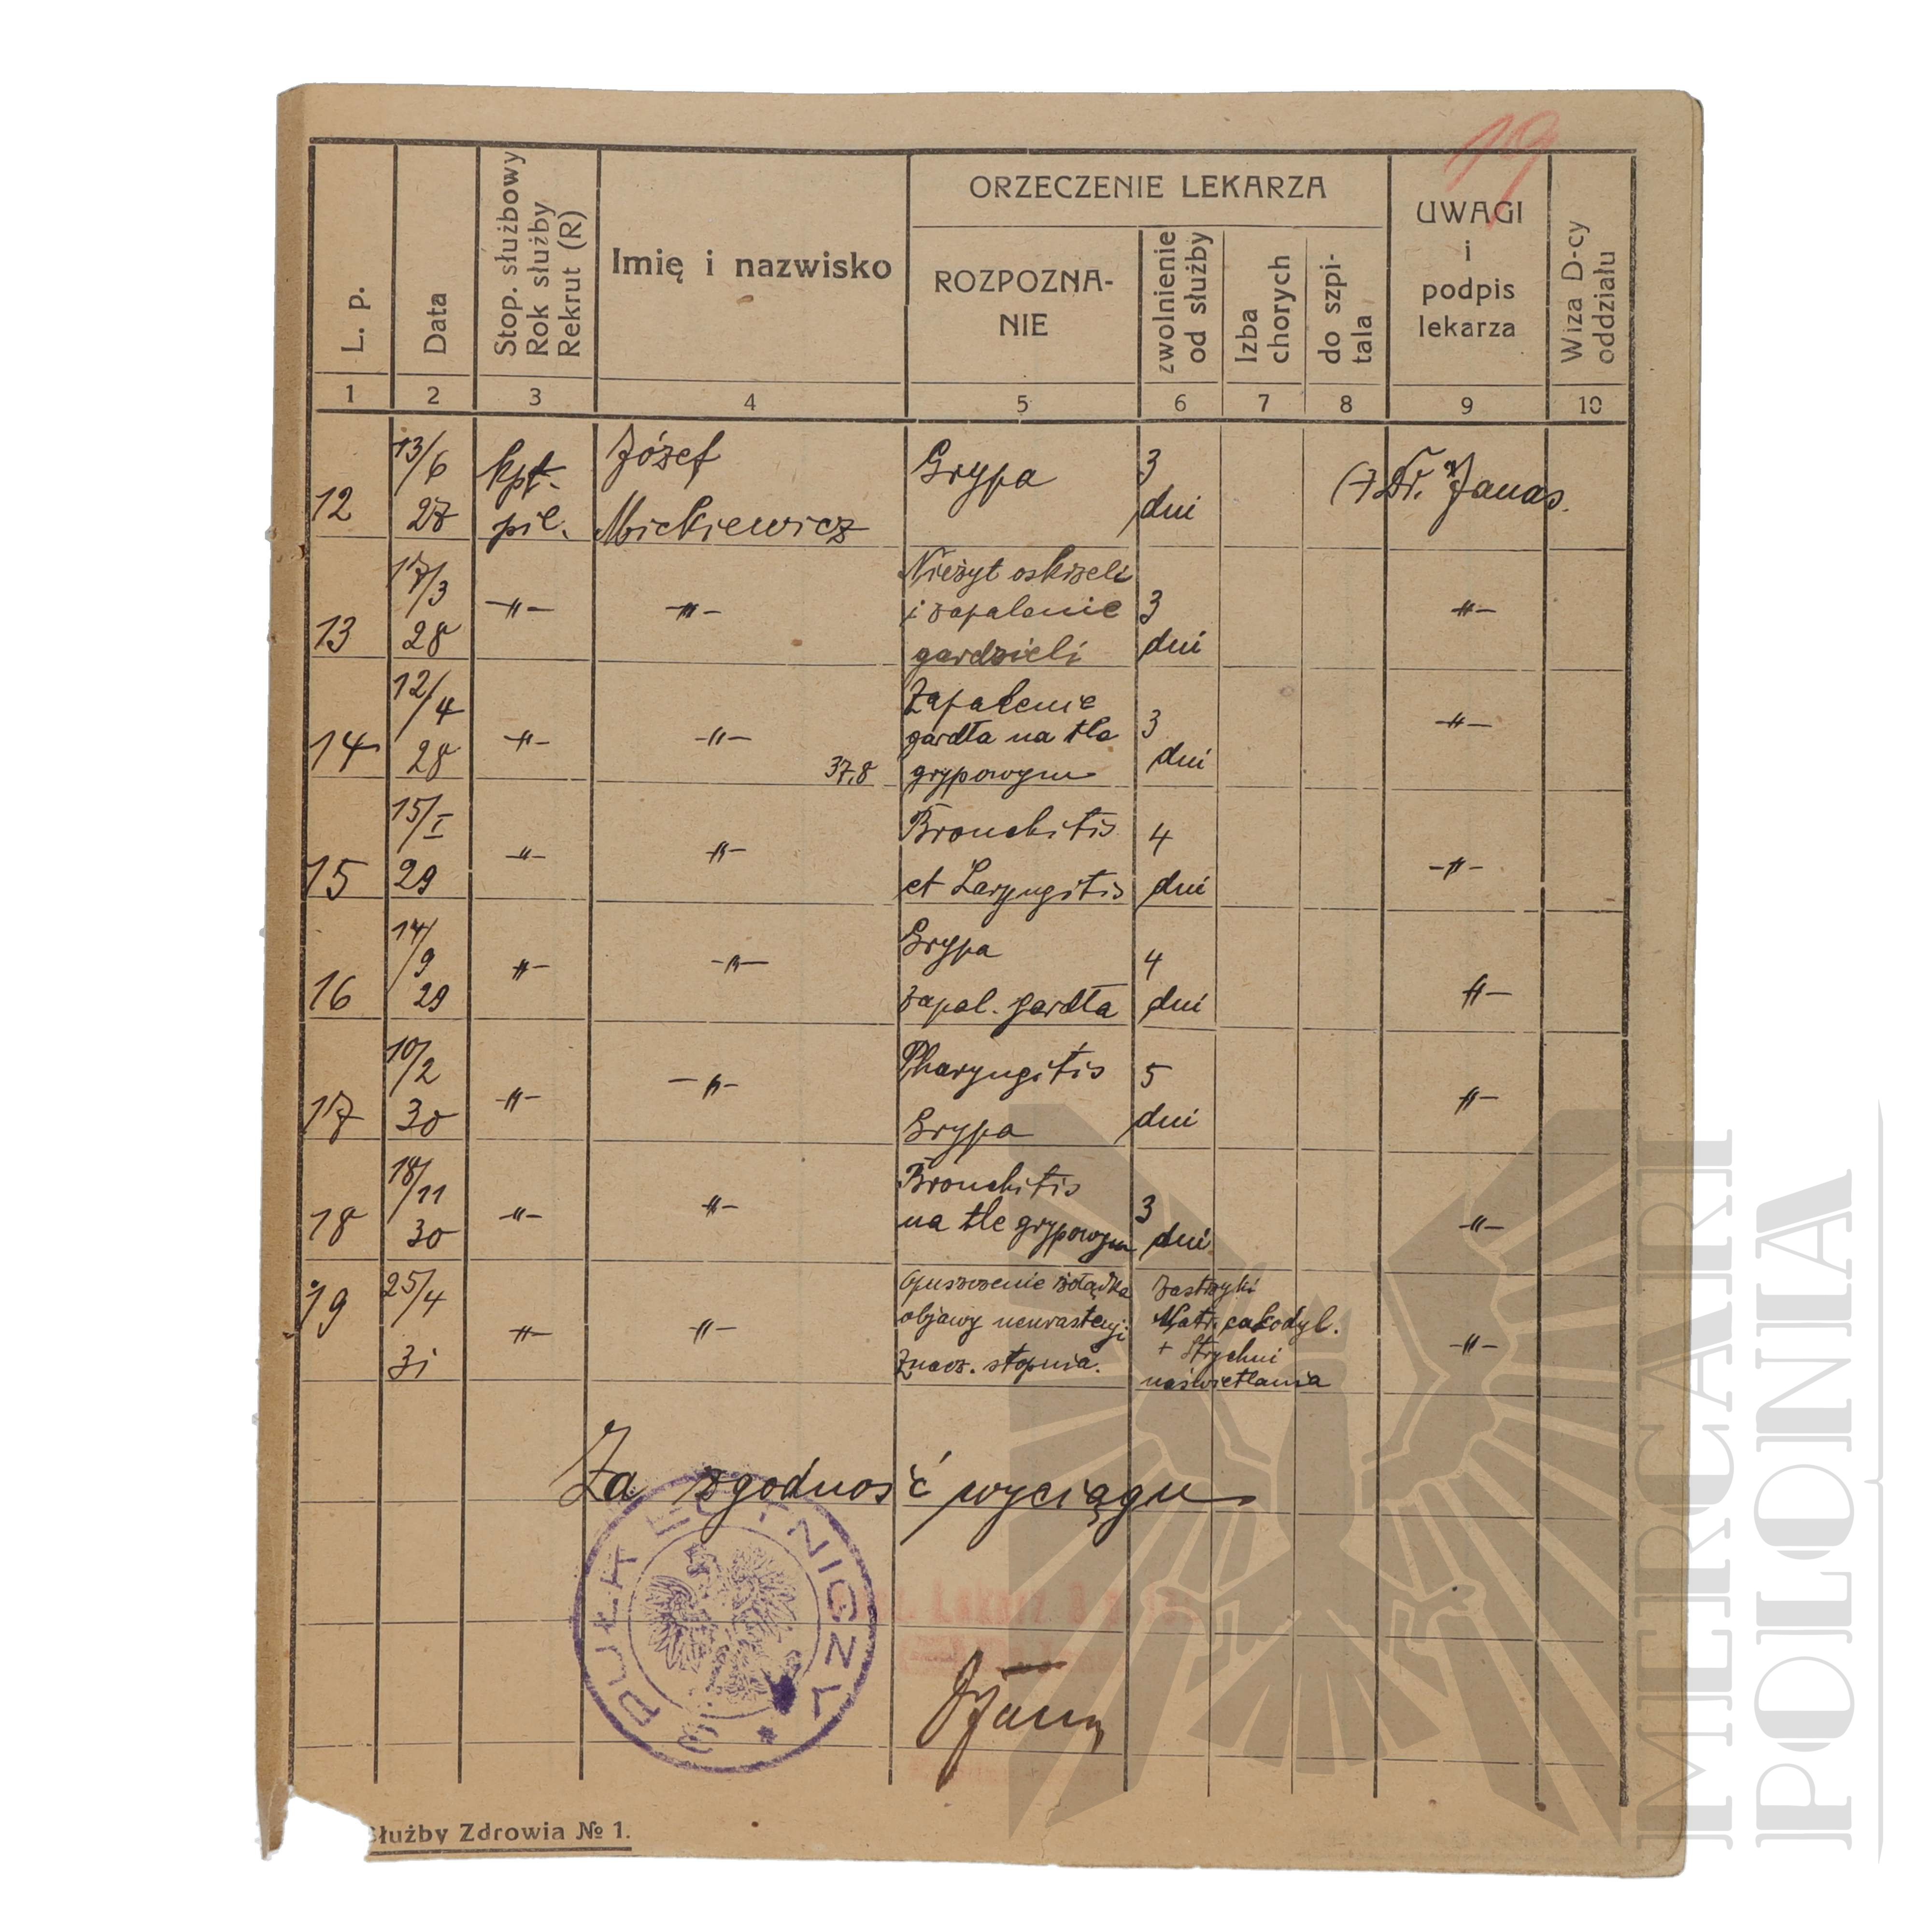 19
L. p.
Data
Stop. służbowy
Rok służby
Rekrut (R)
Imię i nazwisko
ORZECZENIE LEKARZA
ROZPOZNA-
NIE
zwolnienie
od służby
Izba
chorych
do szpi-
tala
UWAGI
i
podpis
lekarza
Wiza D-cy
oddziału
1 2 3 4 5 6 7 8 9 10
12 13/6 27 kpt. pil. Józef Mickiewicz Grypa 3 dni (-) Dr. Janas.
13 17/3 28 —"— —"— Nieżyt oskrzeli
i zapalenie
gardzieli 3 dni —"—
14 12/4 28 —"— —"— 37.8 Zapalenie
gardła na tle
grypowym 3 dni —"—
15 15/I 29 —"— —"— Bronchitis
et Laryngitis 4 dni —"—
16 14/9 29 —"— —"— Grypa
zapal. gardła 4 dni —"—
17 10/2 30 —"— —"— Pharyngitis
Grypa 5 dni —"—
18 18/11 30 —"— —"— Bronchitis
na tle grypowym 3 dni —"—
19 25/4 31 —"— —"— Opuszczenie żołądka
objawy neurastenji
znacz. stopnia. Zastrzyki
Natr. cakodyl.
+ Strychni
naświetlania —"—
Za zgodność wyciągu
3 PUŁK LOTNICZY *
Lekarz 3
Służby Zdrowia № 1.
MERCARI
POLONIA